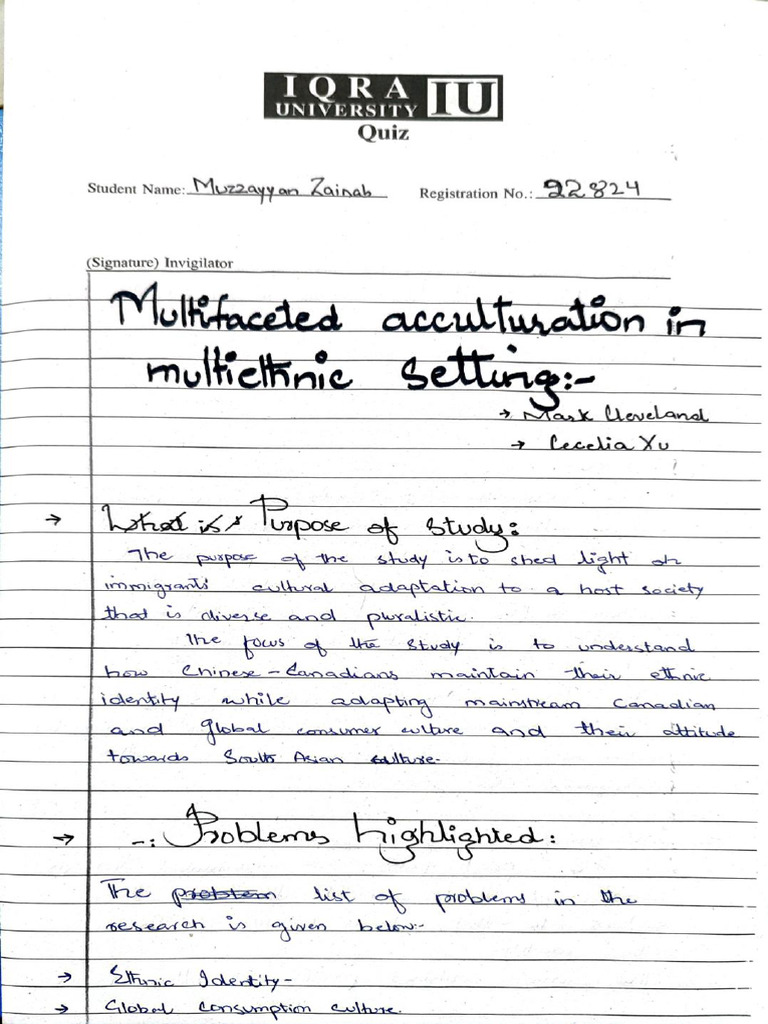 IQRA
UNIVERSITY IU
Quiz
Student Name: Muzzayyan Zainab Registration No.: 22824
(Signature) Invigilator
Multifaceted acculturation in
multiethnic setting:-
→ Mark Cleveland
→ Cecelia Xu
→ What is Purpose of study:
The purpose of the study is to shed light on
immigrants' cultural adaptation to a host society
that is diverse and pluralistic.
The focus of the study is to understand
how Chinese-Canadians maintain their ethnic
identity while adapting mainstream Canadian
and global consumer culture and their attitude
towards South Asian culture.
→ -: Problems highlighted:
The problem list of problems in the
research is given below:-
→ Ethnic Identity-
→ Global consumption culture.